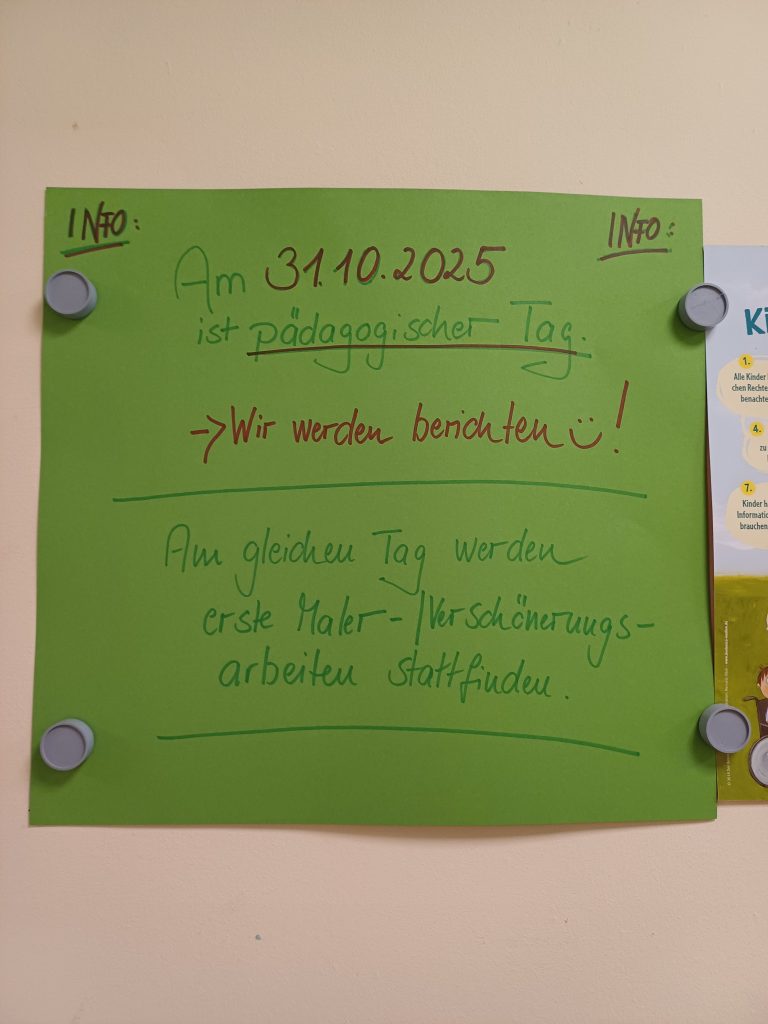 INFO:
INFO:
Am 31.10.2025
ist pädagogischer Tag.
-> Wir werden berichten :)!
Am gleichen Tag werden
erste Maler-/Verschönerungs-
arbeiten stattfinden.
Ki
1.
Alle Kinder
chen Rechte
benachte
4.
zu
7.
Kinder h
Informatio
brauchen